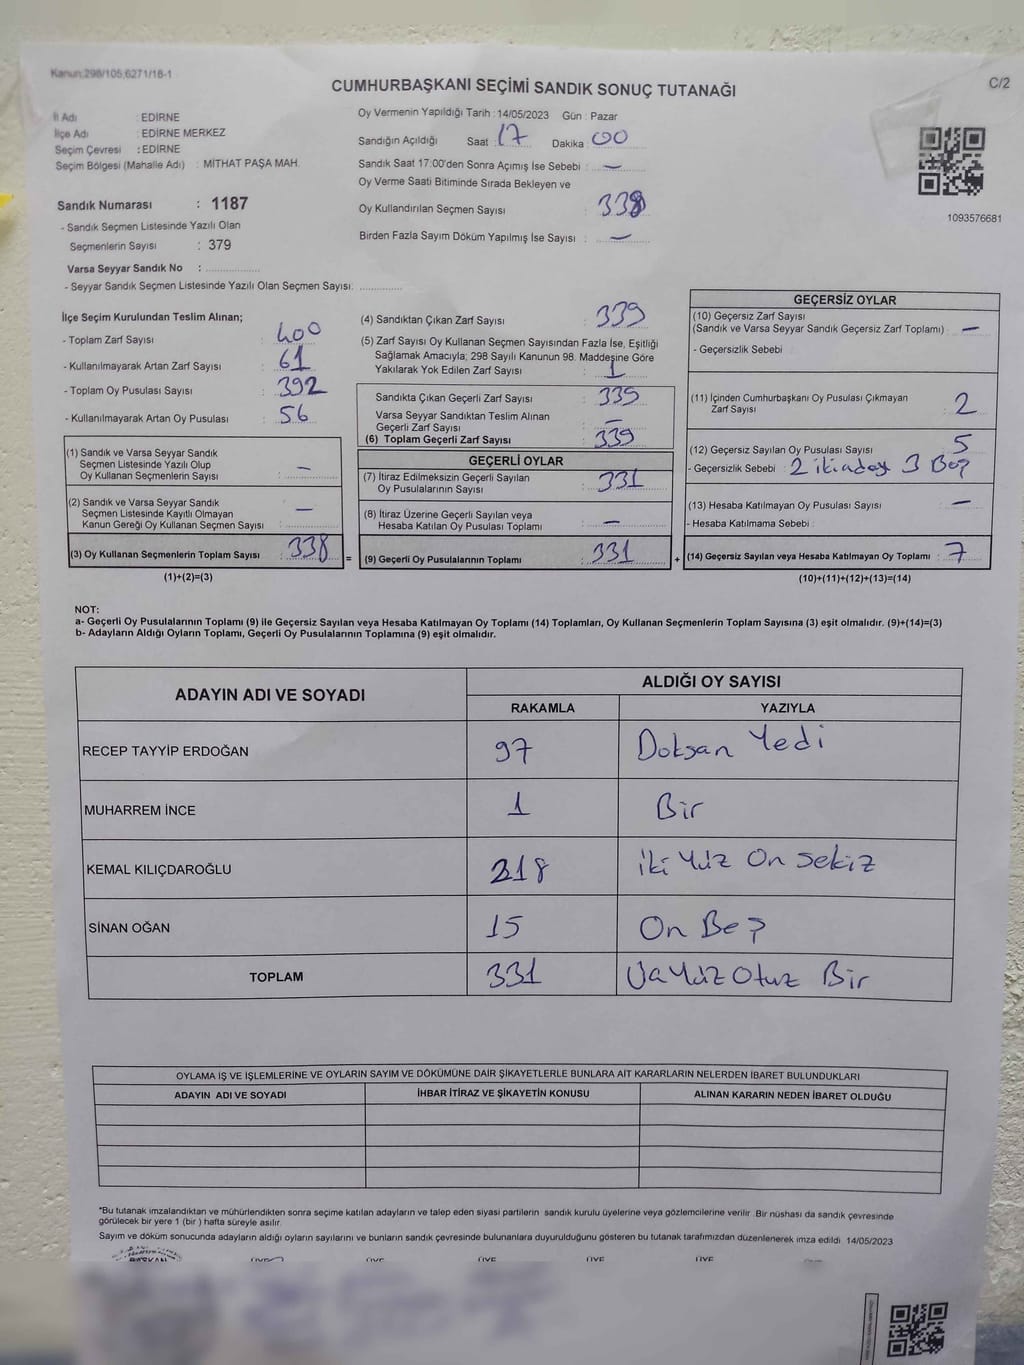 Kanun:298/105,6271/18-1
CUMHURBAŞKANI SEÇİMİ SANDIK SONUÇ TUTANAĞI
C/2
İl Adı : EDİRNE
İlçe Adı : EDİRNE MERKEZ
Seçim Çevresi : EDİRNE
Seçim Bölgesi (Mahalle Adı) : MİTHAT PAŞA MAH.
Sandık Numarası : 1187
- Sandık Seçmen Listesinde Yazılı Olan
Seçmenlerin Sayısı : 379
Varsa Seyyar Sandık No :
- Seyyar Sandık Seçmen Listesinde Yazılı Olan Seçmen Sayısı:
Oy Vermenin Yapıldığı Tarih : 14/05/2023 Gün : Pazar
Sandığın Açıldığı Saat 17 Dakika 00
Sandık Saat 17:00'den Sonra Açımış İse Sebebi : —
Oy Verme Saati Bitiminde Sırada Bekleyen ve
Oy Kullandırılan Seçmen Sayısı : 338
Birden Fazla Sayım Döküm Yapılmış İse Sayısı : —
1093576681
İlçe Seçim Kurulundan Teslim Alınan;
- Toplam Zarf Sayısı : 400
- Kullanılmayarak Artan Zarf Sayısı : 61
- Toplam Oy Pusulası Sayısı : 392
- Kullanılmayarak Artan Oy Pusulası : 56
(1) Sandık ve Varsa Seyyar Sandık
Seçmen Listesinde Yazılı Olup
Oy Kullanan Seçmenlerin Sayısı : —
(2) Sandık ve Varsa Seyyar Sandık
Seçmen Listesinde Kayıtlı Olmayan
Kanun Gereği Oy Kullanan Seçmen Sayısı : —
(3) Oy Kullanan Seçmenlerin Toplam Sayısı : 338
=
(1)+(2)=(3)
(4) Sandıktan Çıkan Zarf Sayısı : 339
(5) Zarf Sayısı Oy Kullanan Seçmen Sayısından Fazla İse, Eşitliği
Sağlamak Amacıyla; 298 Sayılı Kanunun 98. Maddesine Göre
Yakılarak Yok Edilen Zarf Sayısı : 1
Sandıkta Çıkan Geçerli Zarf Sayısı : 339
Varsa Seyyar Sandıktan Teslim Alınan
Geçerli Zarf Sayısı : —
(6) Toplam Geçerli Zarf Sayısı : 339
GEÇERLİ OYLAR
(7) İtiraz Edilmeksizin Geçerli Sayılan
Oy Pusulalarının Sayısı : 331
(8) İtiraz Üzerine Geçerli Sayılan veya
Hesaba Katılan Oy Pusulası Toplamı : —
(9) Geçerli Oy Pusulalarının Toplamı : 331
+
GEÇERSİZ OYLAR
(10) Geçersiz Zarf Sayısı
(Sandık ve Varsa Seyyar Sandık Geçersiz Zarf Toplamı) : —
- Geçersizlik Sebebi :
(11) İçinden Cumhurbaşkanı Oy Pusulası Çıkmayan
Zarf Sayısı : 2
(12) Geçersiz Sayılan Oy Pusulası Sayısı : 5
- Geçersizlik Sebebi : 2 iki aday 3 Boş
(13) Hesaba Katılmayan Oy Pusulası Sayısı : —
- Hesaba Katılmama Sebebi :
(14) Geçersiz Sayılan veya Hesaba Katılmayan Oy Toplamı : 7
(10)+(11)+(12)+(13)=(14)
NOT:
a- Geçerli Oy Pusulalarının Toplamı (9) ile Geçersiz Sayılan veya Hesaba Katılmayan Oy Toplamı (14) Toplamları, Oy Kullanan Seçmenlerin Toplam Sayısına (3) eşit olmalıdır. (9)+(14)=(3)
b- Adayların Aldığı Oyların Toplamı, Geçerli Oy Pusulalarının Toplamına (9) eşit olmalıdır.
ADAYIN ADI VE SOYADI ALDIĞI OY SAYISI
RAKAMLA YAZIYLA
RECEP TAYYİP ERDOĞAN 97 Doksan Yedi
MUHARREM İNCE 1 Bir
KEMAL KILIÇDAROĞLU 218 iki Yüz On sekiz
SİNAN OĞAN 15 On Beş
TOPLAM 331 Yüz Otuz Bir
OYLAMA İŞ VE İŞLEMLERİNE VE OYLARIN SAYIM VE DÖKÜMÜNE DAİR ŞİKAYETLERLE BUNLARA AİT KARARLARIN NELERDEN İBARET BULUNDUKLARI
ADAYIN ADI VE SOYADI İHBAR İTİRAZ VE ŞİKAYETİN KONUSU ALINAN KARARIN NEDEN İBARET OLDUĞU
*Bu tutanak imzalandıktan ve mühürlendikten sonra seçime katılan adayların ve talep eden siyasi partilerin sandık kurulu üyelerine veya gözlemcilerine verilir. Bir nüshası da sandık çevresinde
görülecek bir yere 1 (bir) hafta süreyle asılır.
Sayım ve döküm sonucunda adayların aldığı oyların sayılarını ve bunların sandık çevresinde bulunanlara duyurulduğunu gösteren bu tutanak tarafımızdan düzenlenerek imza edildi. 14/05/2023
BAŞKAN ÜYE ÜYE ÜYE ÜYE ÜYE